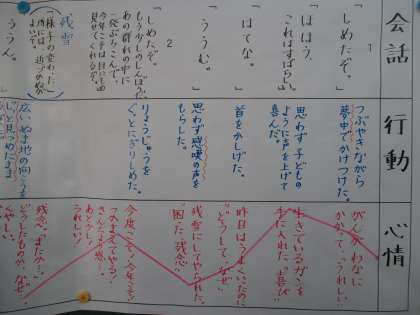 会話
1
「しめたぞ。」
「ほほう、
これはすばらしい。」
「はてな。」
「ううむ。」
2
「しめたぞ。
もう少しのしんぼうだ。
あの群れの中に
一発ぶちこんで、
今年こそは目にもの
見せてくれるぞ。」
残雪
「様子の変わった
所には、近づかぬが
よいぞ。」
「ううん。」
行動
つぶやきながら
夢中でかけつけた。
思わず子どもの
ように声を上げて
喜んだ。
首をかしげた。
思わず感嘆の声を
もらした。
りょうじゅうを
ぐっとにぎりしめた。
広いぬま地の向こうを
じっと見つめたまま
心情
がんがわなに
かかって、「うれしい」
生きているガンを
手に入れた。「喜び」
昨日はうまくいったのに
「どうして、なぜ」
残雪にしてやられた。
「困った、残念」
今度こそ!今年こそ!
つかまえてやる!
さんざんな思い。
あと少し!
うれしい!
残念。「まだか…」
どうしたものか、なぜ?
くやしい。